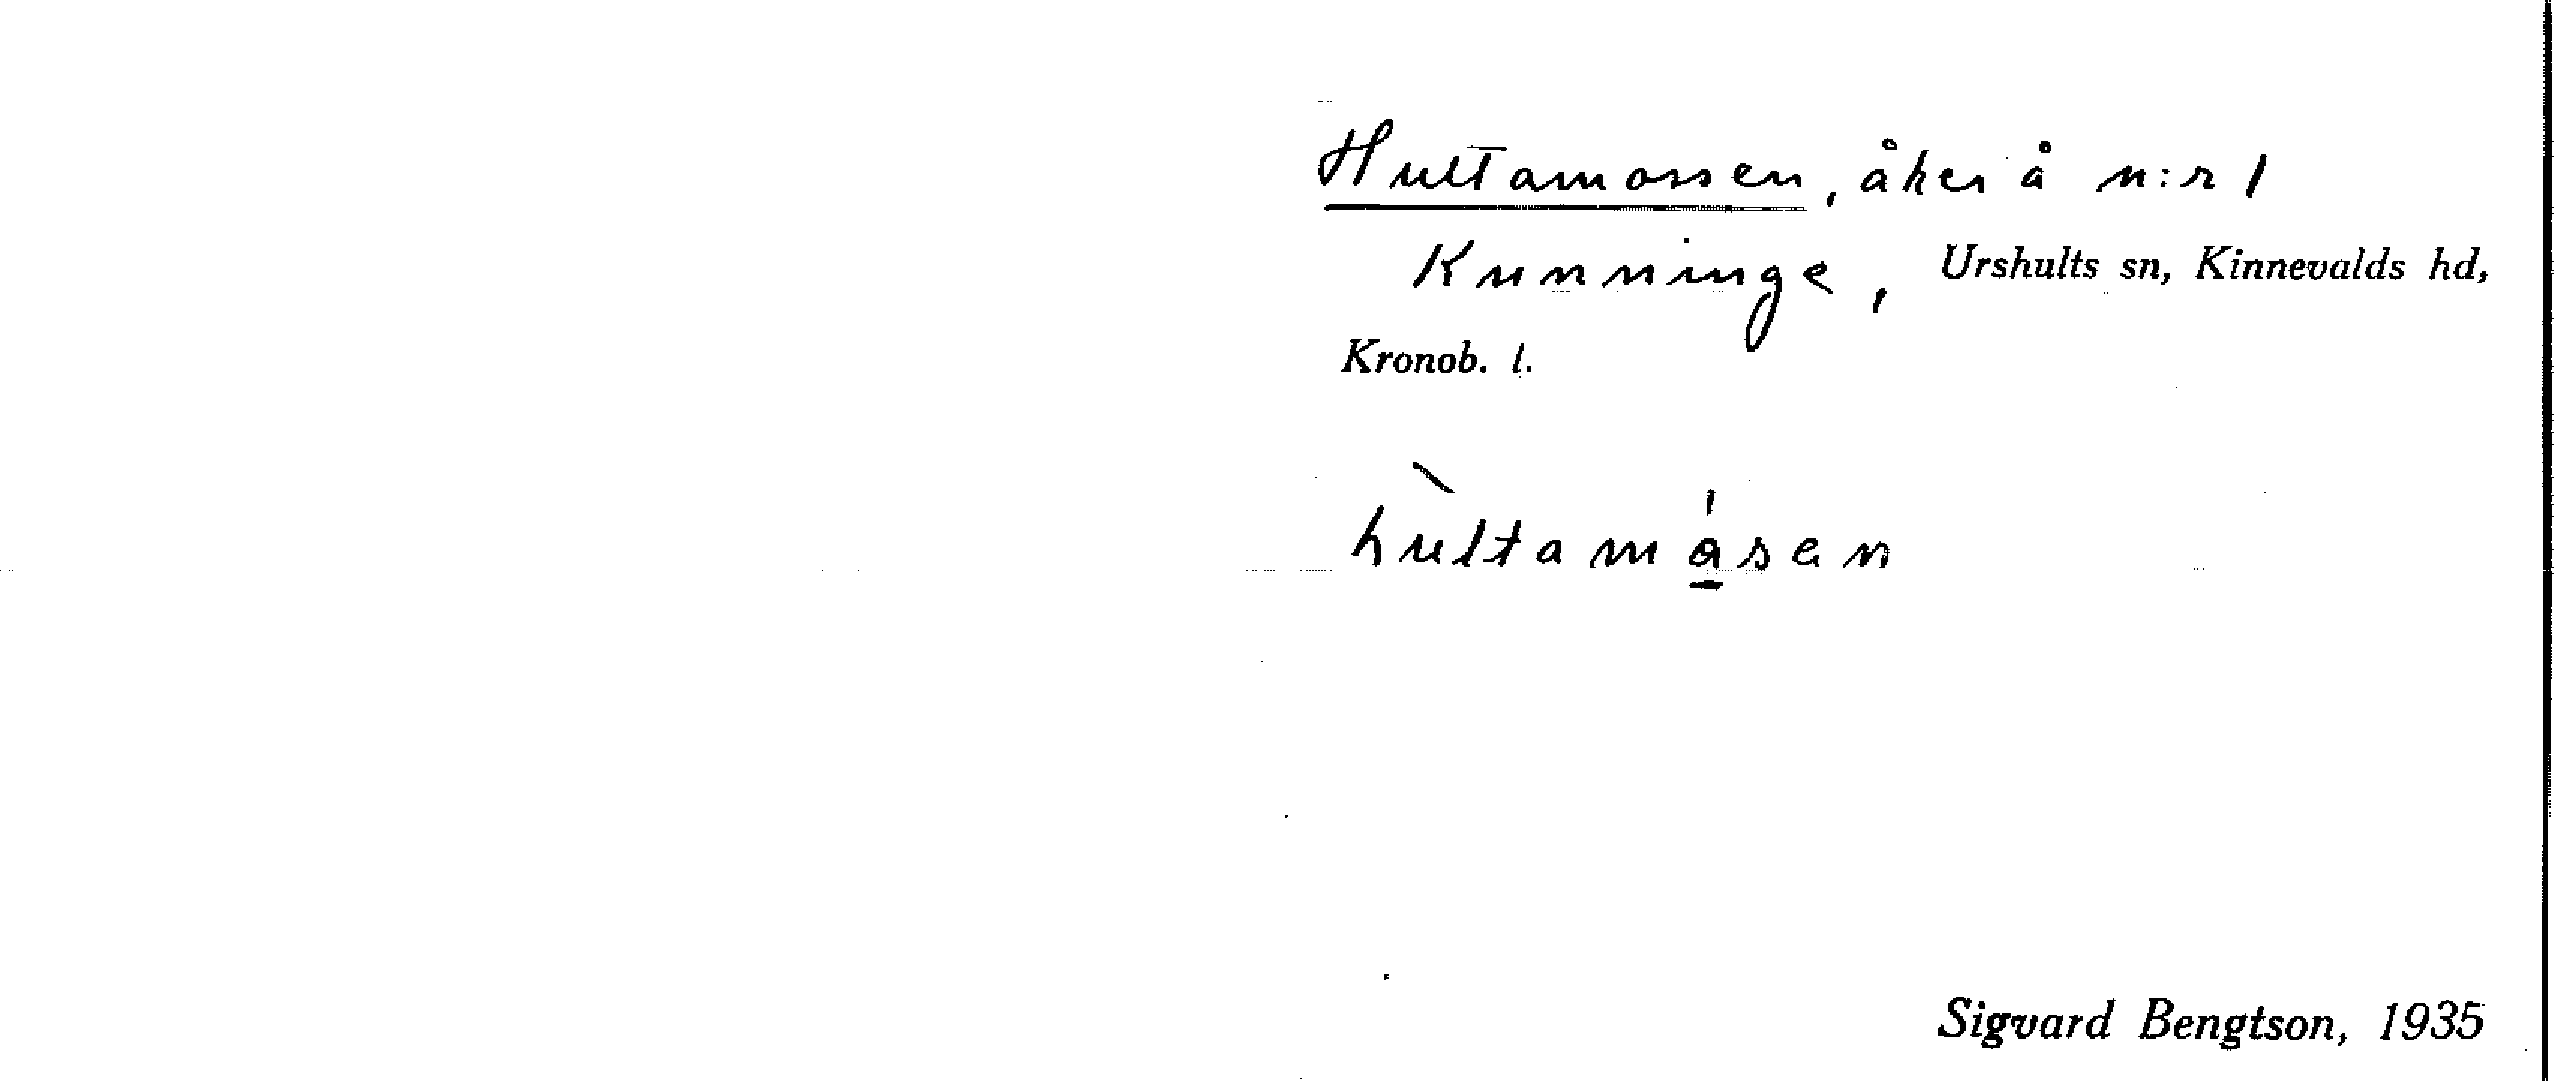 Hultamossen, åker å n:r 1
Kunninge, Urshults sn, Kinnevalds hd,
Kronob. l.
hùltamásen
Sigvard Bengtson, 1935